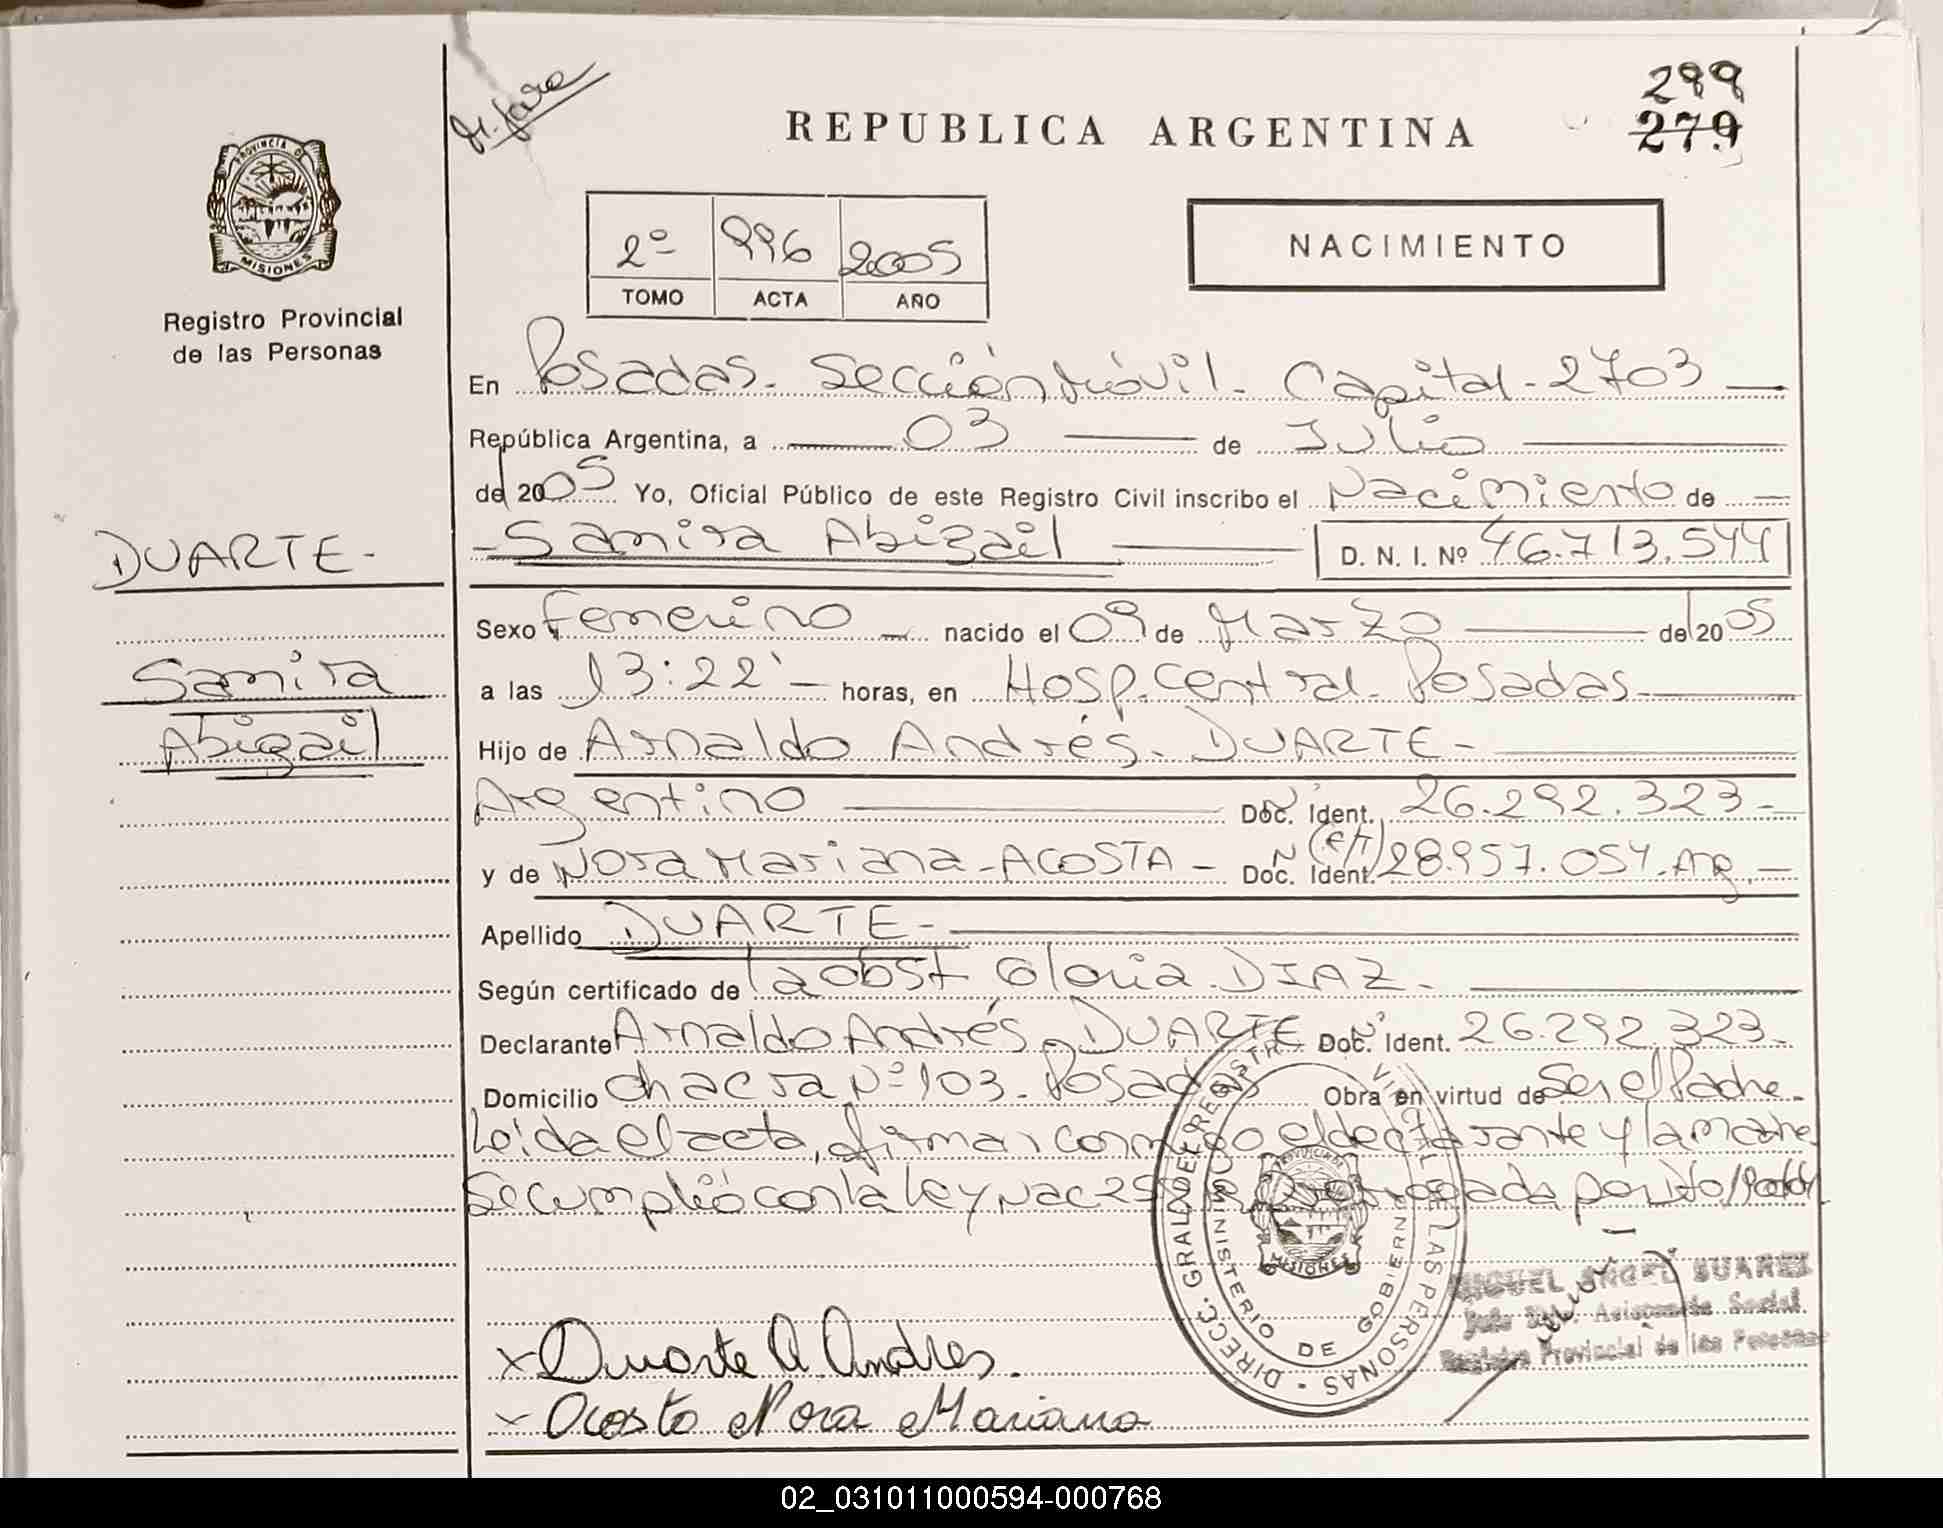 299
279
REPUBLICA ARGENTINA
PROVINCIA DE
MISIONES
Registro Provincial
de las Personas
2º 996 2005
TOMO ACTA AÑO
NACIMIENTO
En Posadas - Sección Móvil - Capital - 2703
República Argentina, a 03 de Julio
del 2005 Yo, Oficial Público de este Registro Civil inscribo el Nacimiento de
Samira Abigail D. N. I. Nº 46.713.544
DUARTE -
Samira
Abigail
Sexo Femenino nacido el 09 de Marzo del 2005
a las 13:22' horas, en Hosp. Central - Posadas
Hijo de Arnaldo Andrés - DUARTE -
Argentino Doc. Ident. 26.292.323 -
y de Nora Mariana - ACOSTA - Doc. Ident. 28.957.054. Arg. -
Apellido DUARTE -
Según certificado de la obst Gloria DIAZ -
Declarante Arnaldo Andrés - DUARTE Doc. Ident. 26.292.323 -
Domicilio Chacra Nº 103 - Posadas Obra en virtud de Ser el Padre -
Leída el acta, firman conmigo el declarante y la madre
Se cumplió con la Ley Nac 25 por
DIRECC. GRAL DE REGISTRO DE LAS PERSONAS
MINISTERIO DE GOBIERNO
PROVINCIA DE
MISIONES
MIGUEL ANGEL SUAREZ
Asistencia Social
Registro Provincial de las Personas
x Duarte A. Andres.
x Acosta Nora Mariana
02_031011000594-000768